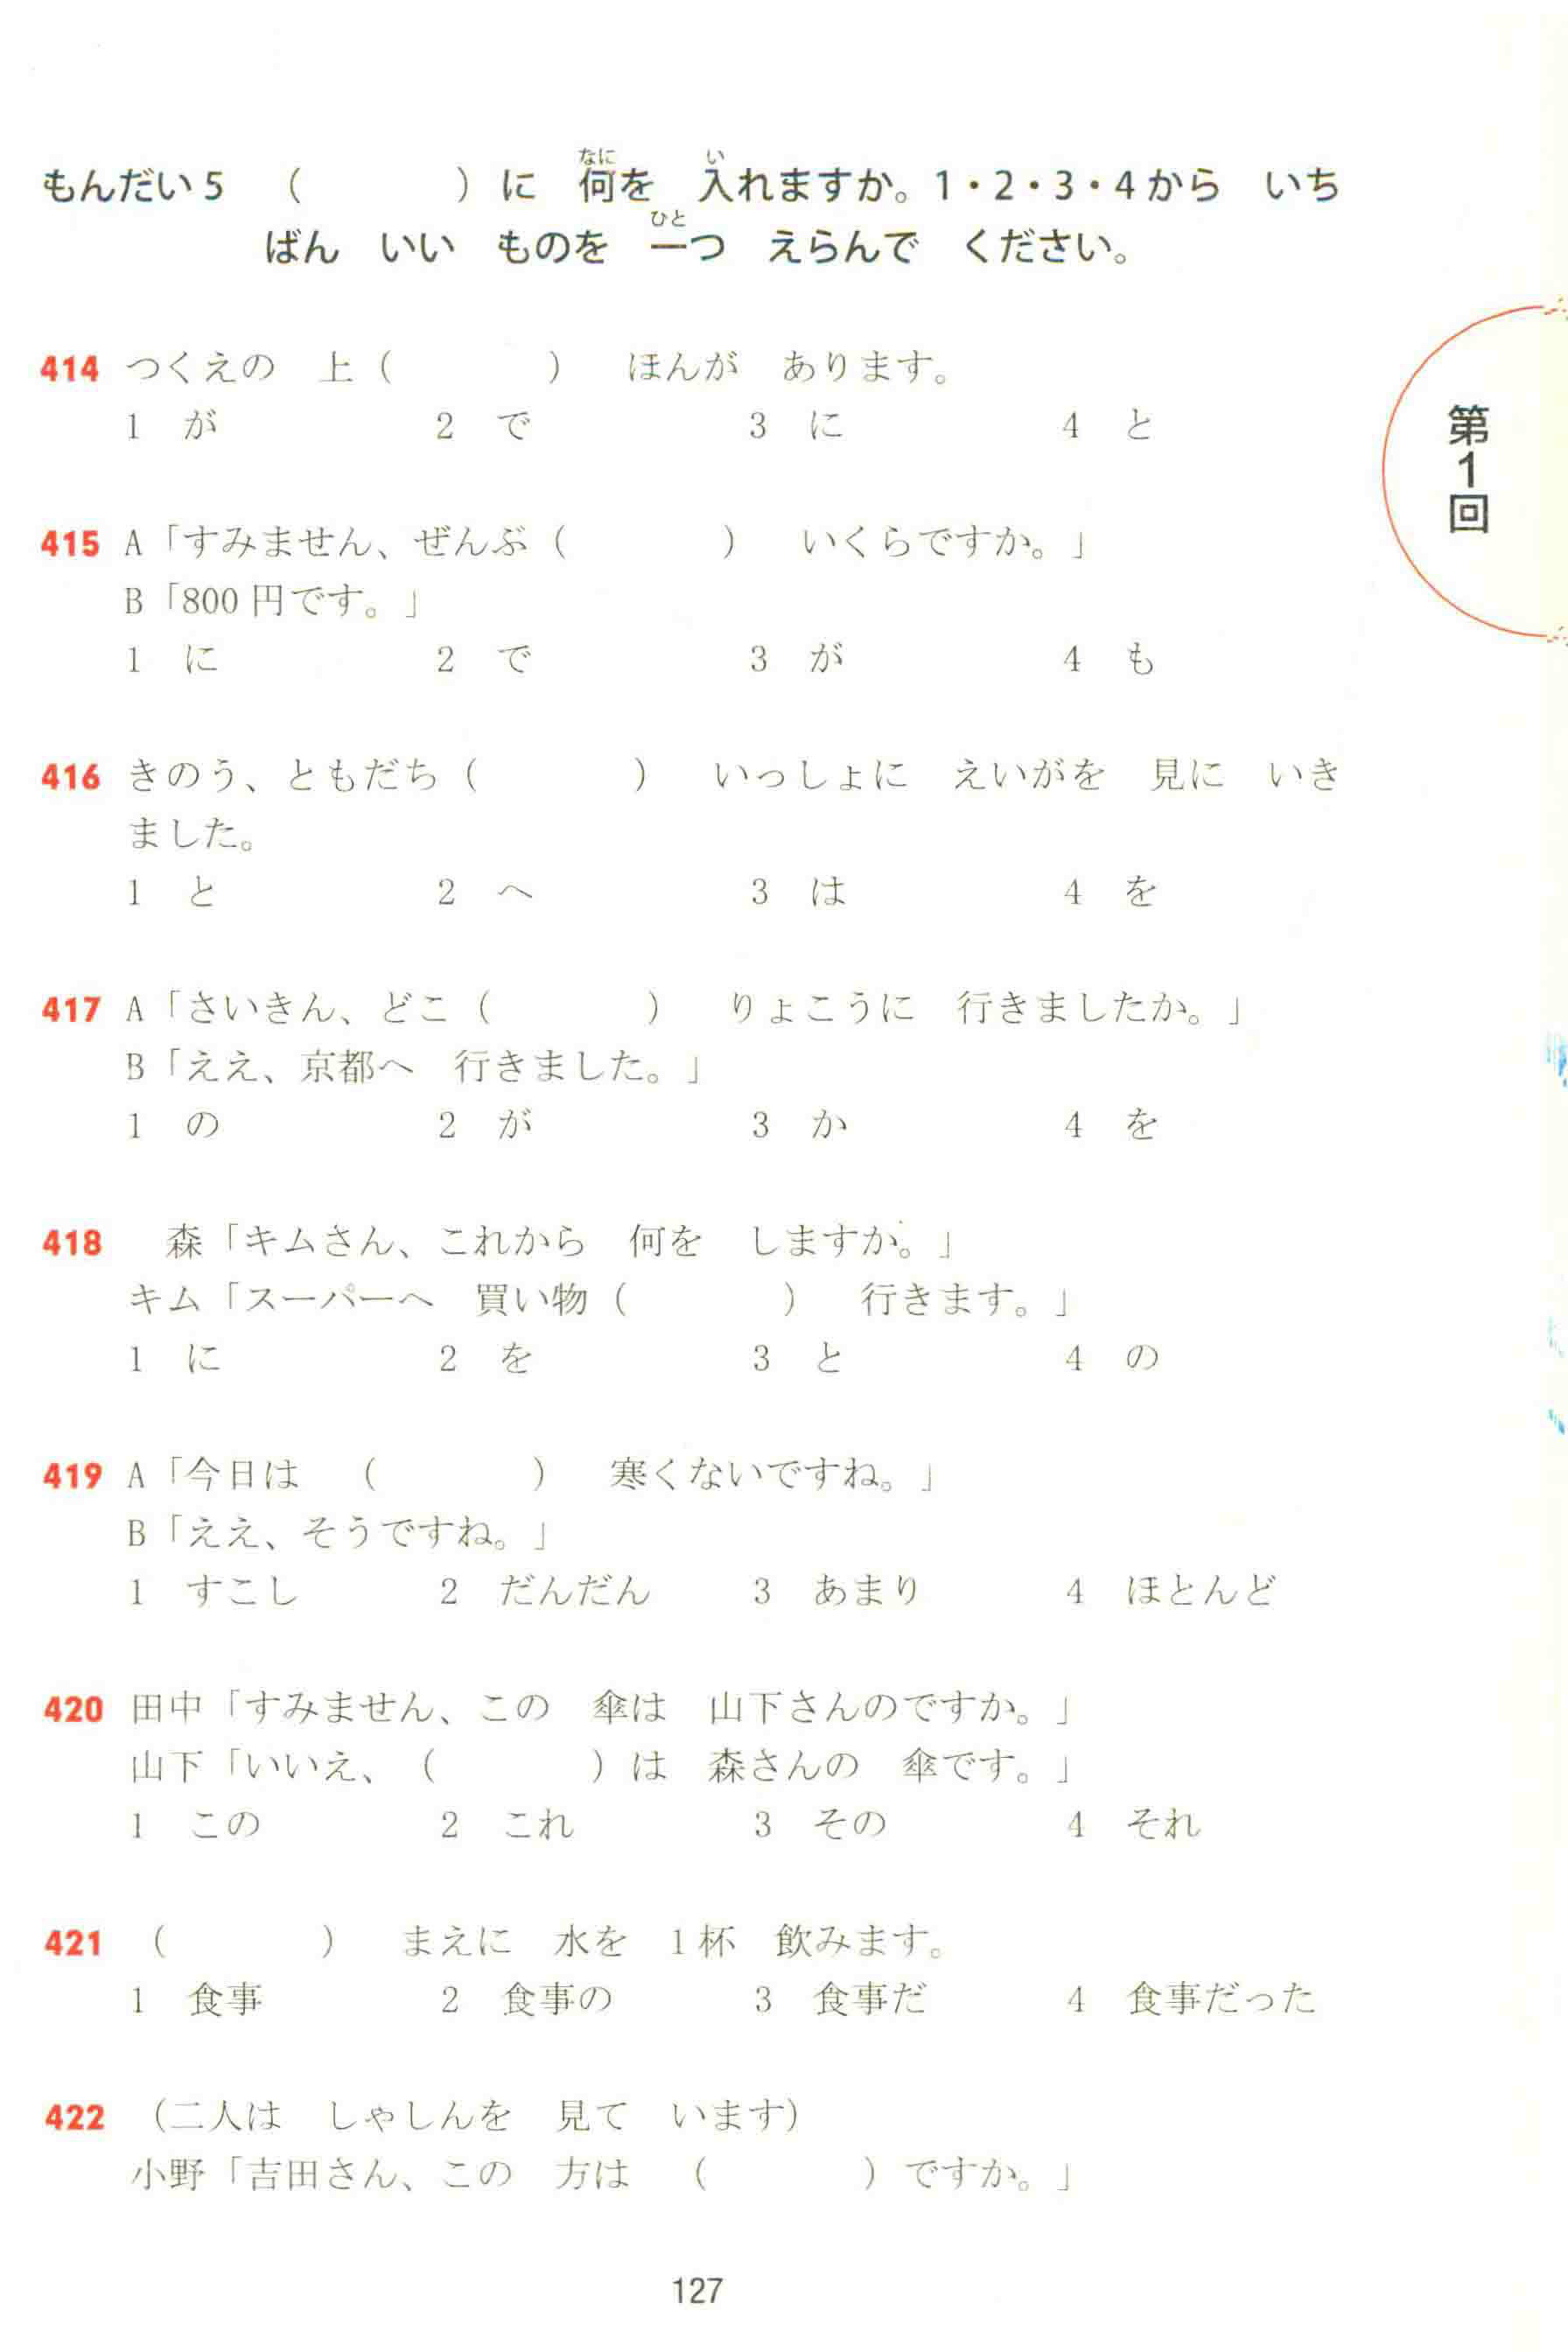 もんだい5 （　　　）に 何を 入れますか。1・2・3・4から いち
ばん いい ものを 一つ えらんで ください。
414 つくえの 上（　　　） ほんが あります。
1 が 2 で 3 に 4 と
415 A「すみません、ぜんぶ（　　　） いくらですか。」
B「800円です。」
1 に 2 で 3 が 4 も
416 きのう、ともだち（　　　） いっしょに えいがを 見に いき
ました。
1 と 2 へ 3 は 4 を
417 A「さいきん、どこ（　　　） りょこうに 行きましたか。」
B「ええ、京都へ 行きました。」
1 の 2 が 3 か 4 を
418 森「キムさん、これから 何を しますか。」
キム「スーパーへ 買い物（　　　） 行きます。」
1 に 2 を 3 と 4 の
419 A「今日は （　　　） 寒くないですね。」
B「ええ、そうですね。」
1 すこし 2 だんだん 3 あまり 4 ほとんど
420 田中「すみません、この 傘は 山下さんのですか。」
山下「いいえ、（　　　）は 森さんの 傘です。」
1 この 2 これ 3 その 4 それ
421 （　　　） まえに 水を 1杯 飲みます。
1 食事 2 食事の 3 食事だ 4 食事だった
422 （二人は しゃしんを 見て います）
小野「吉田さん、この 方は （　　　）ですか。」
127
第1回
なに
い
ひと